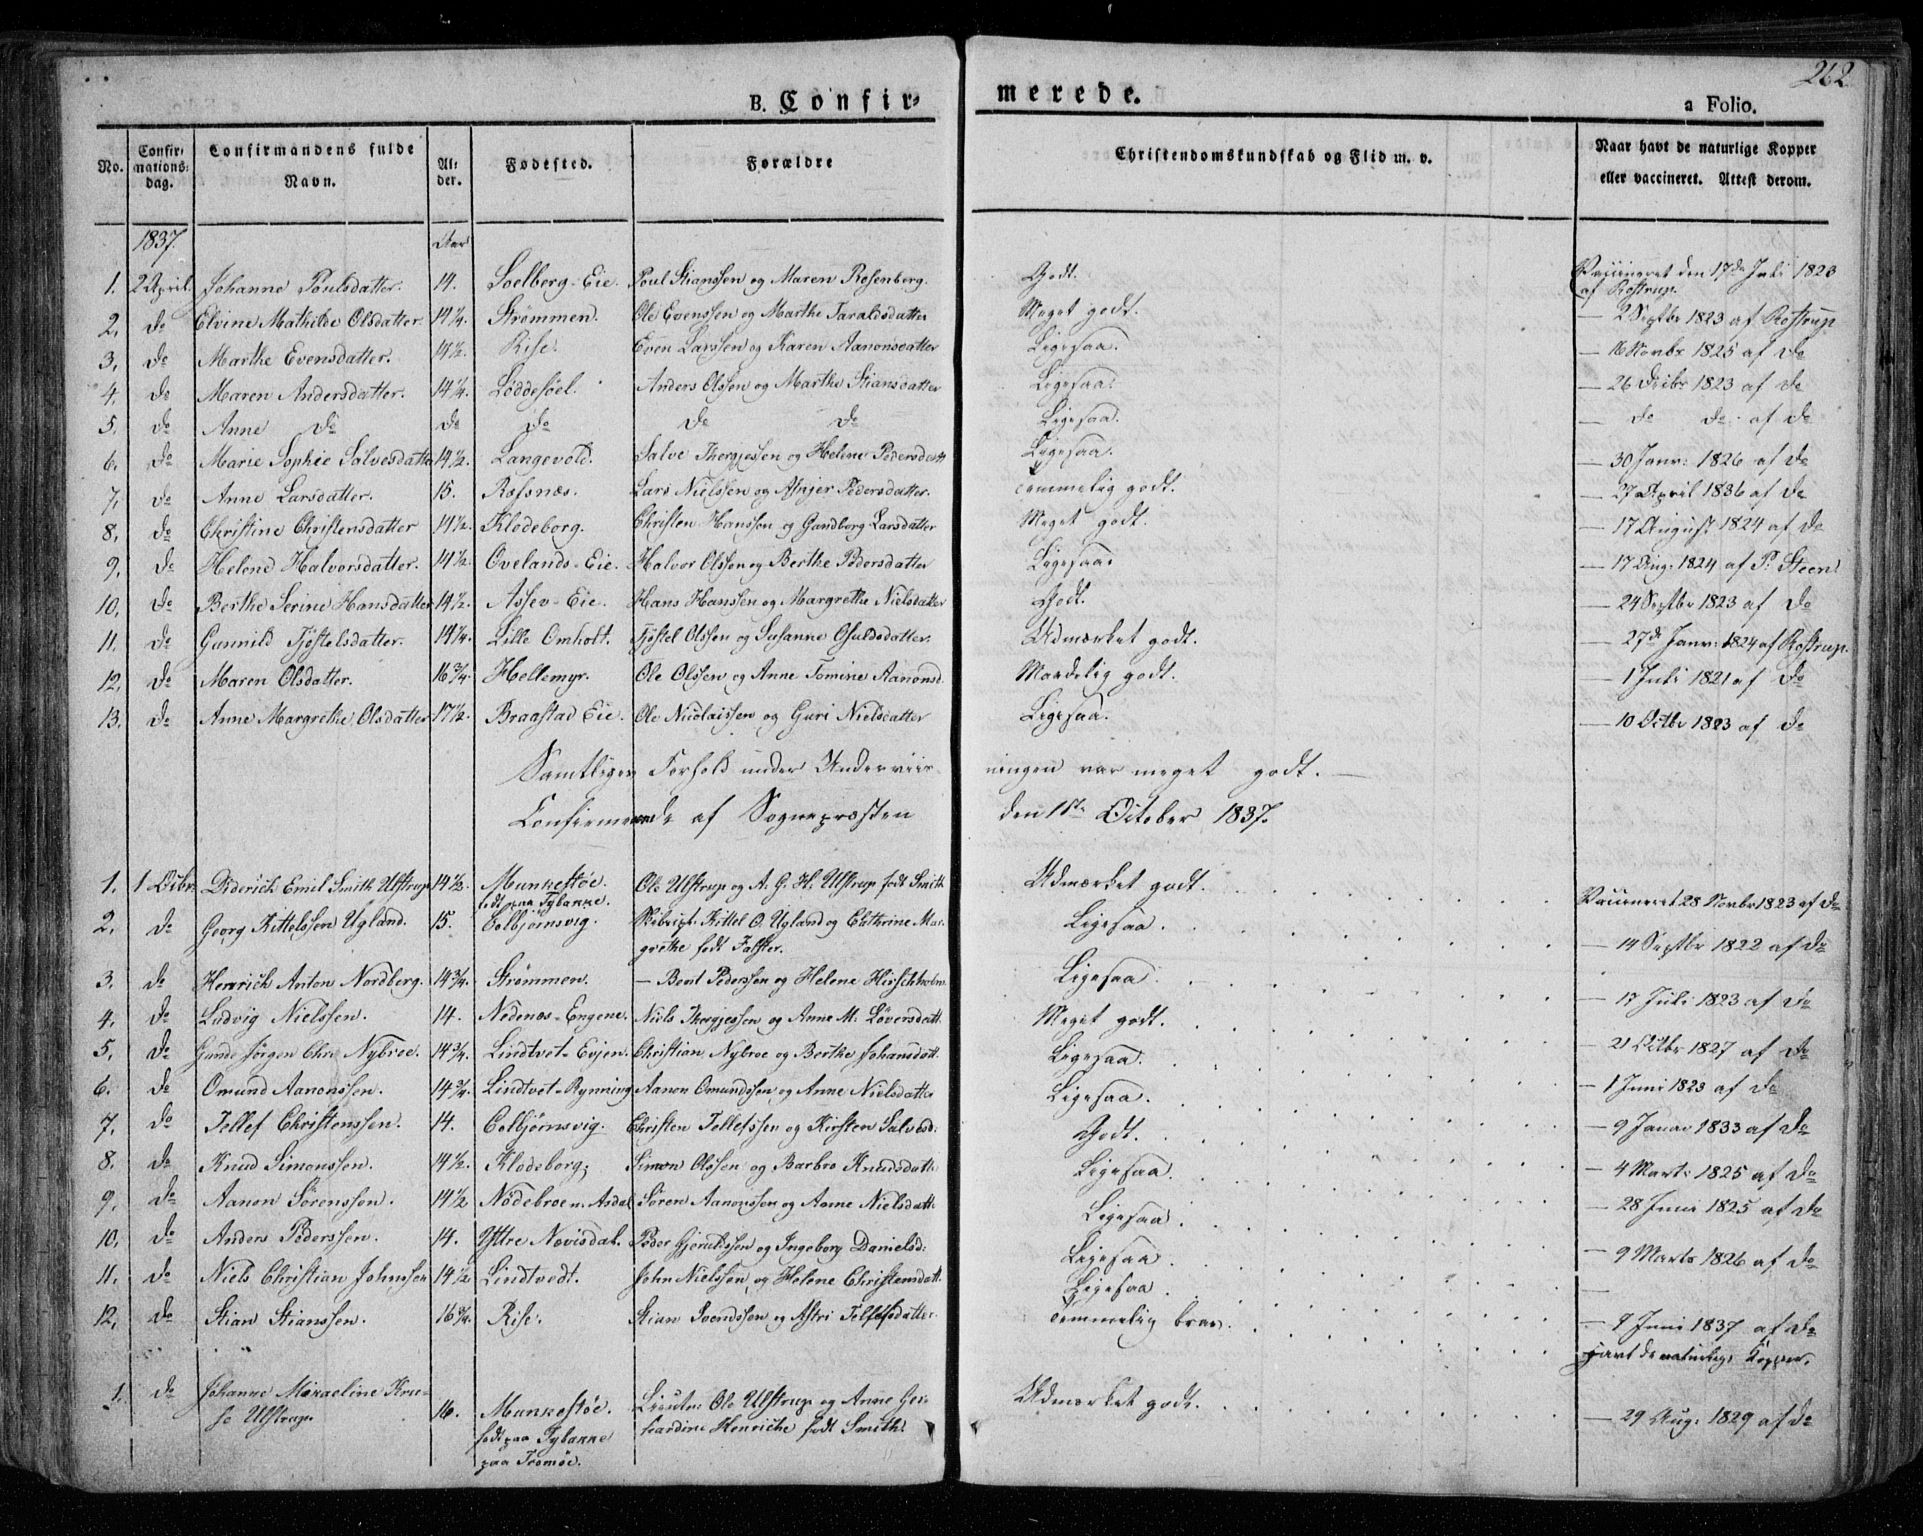 262
B. Confir-
merede.
a Folio.
No. Confir-mations-dag. Confirmandens fulde Navn. Al-der. Fødested. Forældre Christendomskundskab og Flid m. v. Naar havt de naturlige Kopper eller vaccineret. Attest derom.
1837. Aar
1. 2 April. Johanne Poulsdatter. 14. Soelberg-Eie. Poul Stianssen og Maren Rosenberg. Godt. Vaccineret den 17de Juli 1823 af Rostrup.
2. do Elvine Mathilde Olsdatter 14 1/4. Strømmen. Ole Evenssen og Marthe Taraldsdatter Meget godt. — 2 Septbr 1823 af Rostrup
3. do Marthe Evensdatter. 14 1/2. Rise. Even Larssen og Karen Aanonsdatter Ligesaa. — 16 Novbr 1825 af do
4. do Maren Andersdatter. 14 1/4. Løddesöel. Anders Olssen og Marthe Stiansdatter Ligesaa. — 26 Decbr 1823 af do
5. do Anne do do do do do Ligesaa. — do do af do
6. do Marie Sophie Salvesdatter 14 1/2. Langevold. Salve Thergjessen og Helene Pedersdatt Ligesaa. — 30 Janr: 1826 af do
7. do Anne Larsdatter. 15. Rosnæs. Lars Nielssen og Asnjer Pedersdatter. Temmelig godt. — 27 April 1836 af do
8. do Christine Christensdatter 14 1/2. Klodeborg. Christen Hanssen og Gundborg Larsdatter Meget godt. — 17 August 1824 af do
9. do Helene Halvorsdatter. 14 1/2. Ovelands-Eie. Halvor Olssen og Berthe Pedersdatter Ligesaa. — 17 Aug. 1824 af P. Steen
10. do Berthe Serine Hansdatter 14 1/2. Assev-Eie. Hans Hanssen og Margrethe Nielsdatter Godt. — 24 Septbr 1823 af do
11. do Gunnild Tjöstelsdatter. 14 1/4. Lille Omholt. Tjöstel Olssen og Susanne Osuldsdatter. Udmærket godt. — 27de Janr: 1824 af Rostrup.
12. do Maren Olsdatter. 16 3/4. Hellemyr. Ole Olssen og Anne Tomine Aanonsd. Maadelig godt. — 1 Juli 1821 af do
13. do Anne Margrethe Olsdatter 17 1/2. Braastad Eie. Ole Nicolaissen og Guri Nielsdatter Ligesaa. — 10 Octbr 1823 af do
Samtliges Forhold under Underviis- ningen var meget godt. —
Confirmerede af Sognepræsten den 1ste October 1837.
1. 1 Octbr. Diderich Emil Smith Ulstrup 14 1/2. Munkestöe. födt paa Tybakke. Ole Ulstrup og A. G. H. Ulstrup födt Smith Udmærket godt. Vaccineret 28 Novbr 1823 af do
2. do Georg Kittelssen Ugland. 15. Colbjørnsvig. Skibscpt: Kittel O. Ugland og Cathrine Mar-grethe födt Falster. Ligesaa — 14 Septbr 1822 af do
3. do Henrich Anton Nordberg. 14 3/4. Strømmen. — Berit Pederssen og Helene Hirschholm Ligesaa. — 17 Juli 1823 af do
4. do Ludvig Nielssen. 14. Nedenæs-Engene. Niels Thergjessen og Anne M: Løversdatt. Meget godt. — 21 Octbr 1827 af do
5. do Gunde Jörgen Chr. Nybroe. 14 3/4. Lindtvet-Evjen. Christian Nybroe og Berthe Johansdatt. Ligesaa. — 1 Juni 1823 af do
6. do Omund Aanonssen. 14 3/4. Lindtvet-Rynning Aanon Omundssen og Anne Nielsdatter Ligesaa.
7. do Tellef Christenssen. 14. Colbjørnsvig. Christen Tellefssen og Kirsten Salvesd: Godt. — 9 Januar 1833 af do
8. do Knud Simonssen. 14 1/2. Klodeborg. Simon Olssen og Barbro Knudsdatt: Ligesaa. — 4 Marts 1825 af do
9. do Aanon Sörenssen. 14 1/2 Nödebroe n. Asdal Sören Aanonssen og Anne Nielsdatt: Ligesaa. — 28 Juni 1825 af do
10. do Anders Pederssen. 14. Yttre Nevisdal. Peder Gjerulssen og Ingeborg Danielsd: Ligesaa. — 9 Marts 1826 af do
11. do Niels Christian Johnssen 14 1/2 Lindtvedt. John Nielssen og Helene Christensdatt. Ligesaa. —
12. do Stian Stianssen. 16 3/4. Rise. Stian Svendssen og Astri Tellefsdatter. Temmelig brav. — 9 Juni 1837 af do
havt de naturlige Kopper.
1. do Johanne Micaeline Kru-se Ulstrup. 16. Munkestöe. födt paa Tybakke paa Tromöe. Lieuten: Ole Ulstrup og Anne Ger-hardine Henriche födt Smith. Udmærket godt. — 29 Aug: 1829 af do